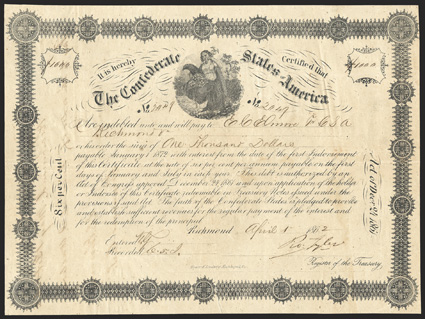 It is hereby Certified that
The Confederate States of America
$1000 $1000
No. 2049 No. 2049
Are indebted unto and will pay to E C Elmore Tr C S A
Richmond Va
or order the sum of One Thousand Dollars
payable January 1 1872 with interest from the date of the first Indorsement
of this Certificate, at the rate of six per cent per annum payable on the first
days of January and July in each year. This debt is authorized by an
Act of Congress approved December 24 1861 and upon application of the holder
or Indorsee of this Certificate redeemable in Treasury Notes fund under the
provisions of said Act. The faith of the Confederate States is pledged to provide
and establish sufficient revenues for the regular payment of the interest and
for the redemption of the principal
Richmond April 1862
Entered
Recorded
Register of the Treasury
Six per Cent
Act of Decr. 24, 1861